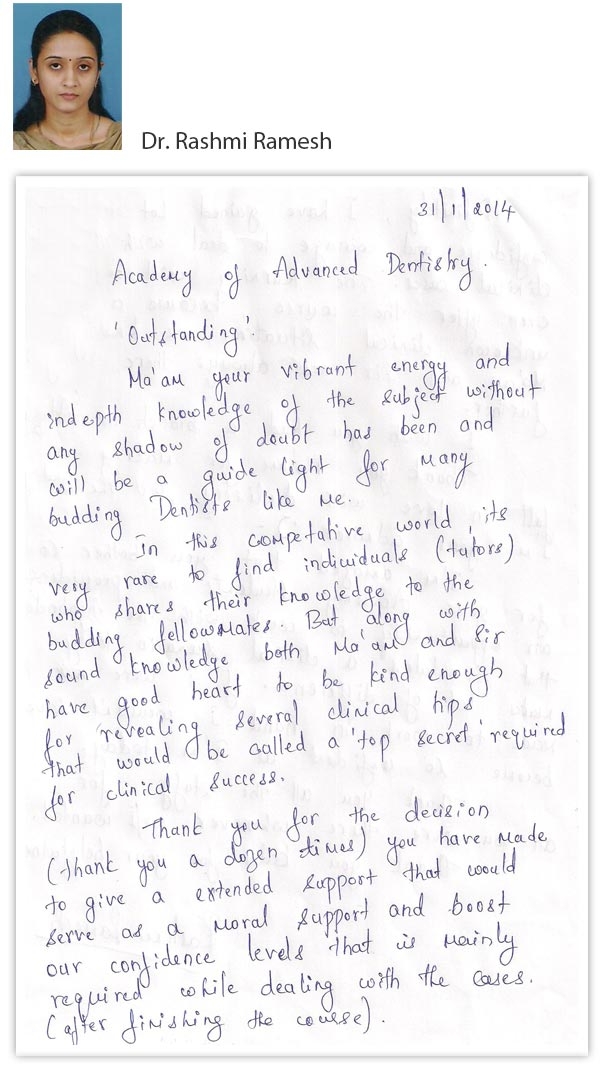 Dr. Rashmi Ramesh
31/1/2014
Academy of Advanced Dentistry.
'Outstanding'.
Ma'am your vibrant energy and
indepth knowledge of the subject without
any shadow of doubt has been and
will be a guide light for many
budding Dentists like me.
In this competative world, its
very rare to find individuals (tutors)
who shares their knowledge to the
budding fellowmates. But along with
sound knowledge both Ma'am and Sir
have good heart to be kind enough
for revealing several clinical tips
that would be called a 'top secret' required
for clinical success.
Thank you for the decision
(thank you a dozen times) you have made
to give a extended support that would
serve as a moral support and boost
our confidence levels that is mainly
required while dealing with the cases.
(after finishing the course).